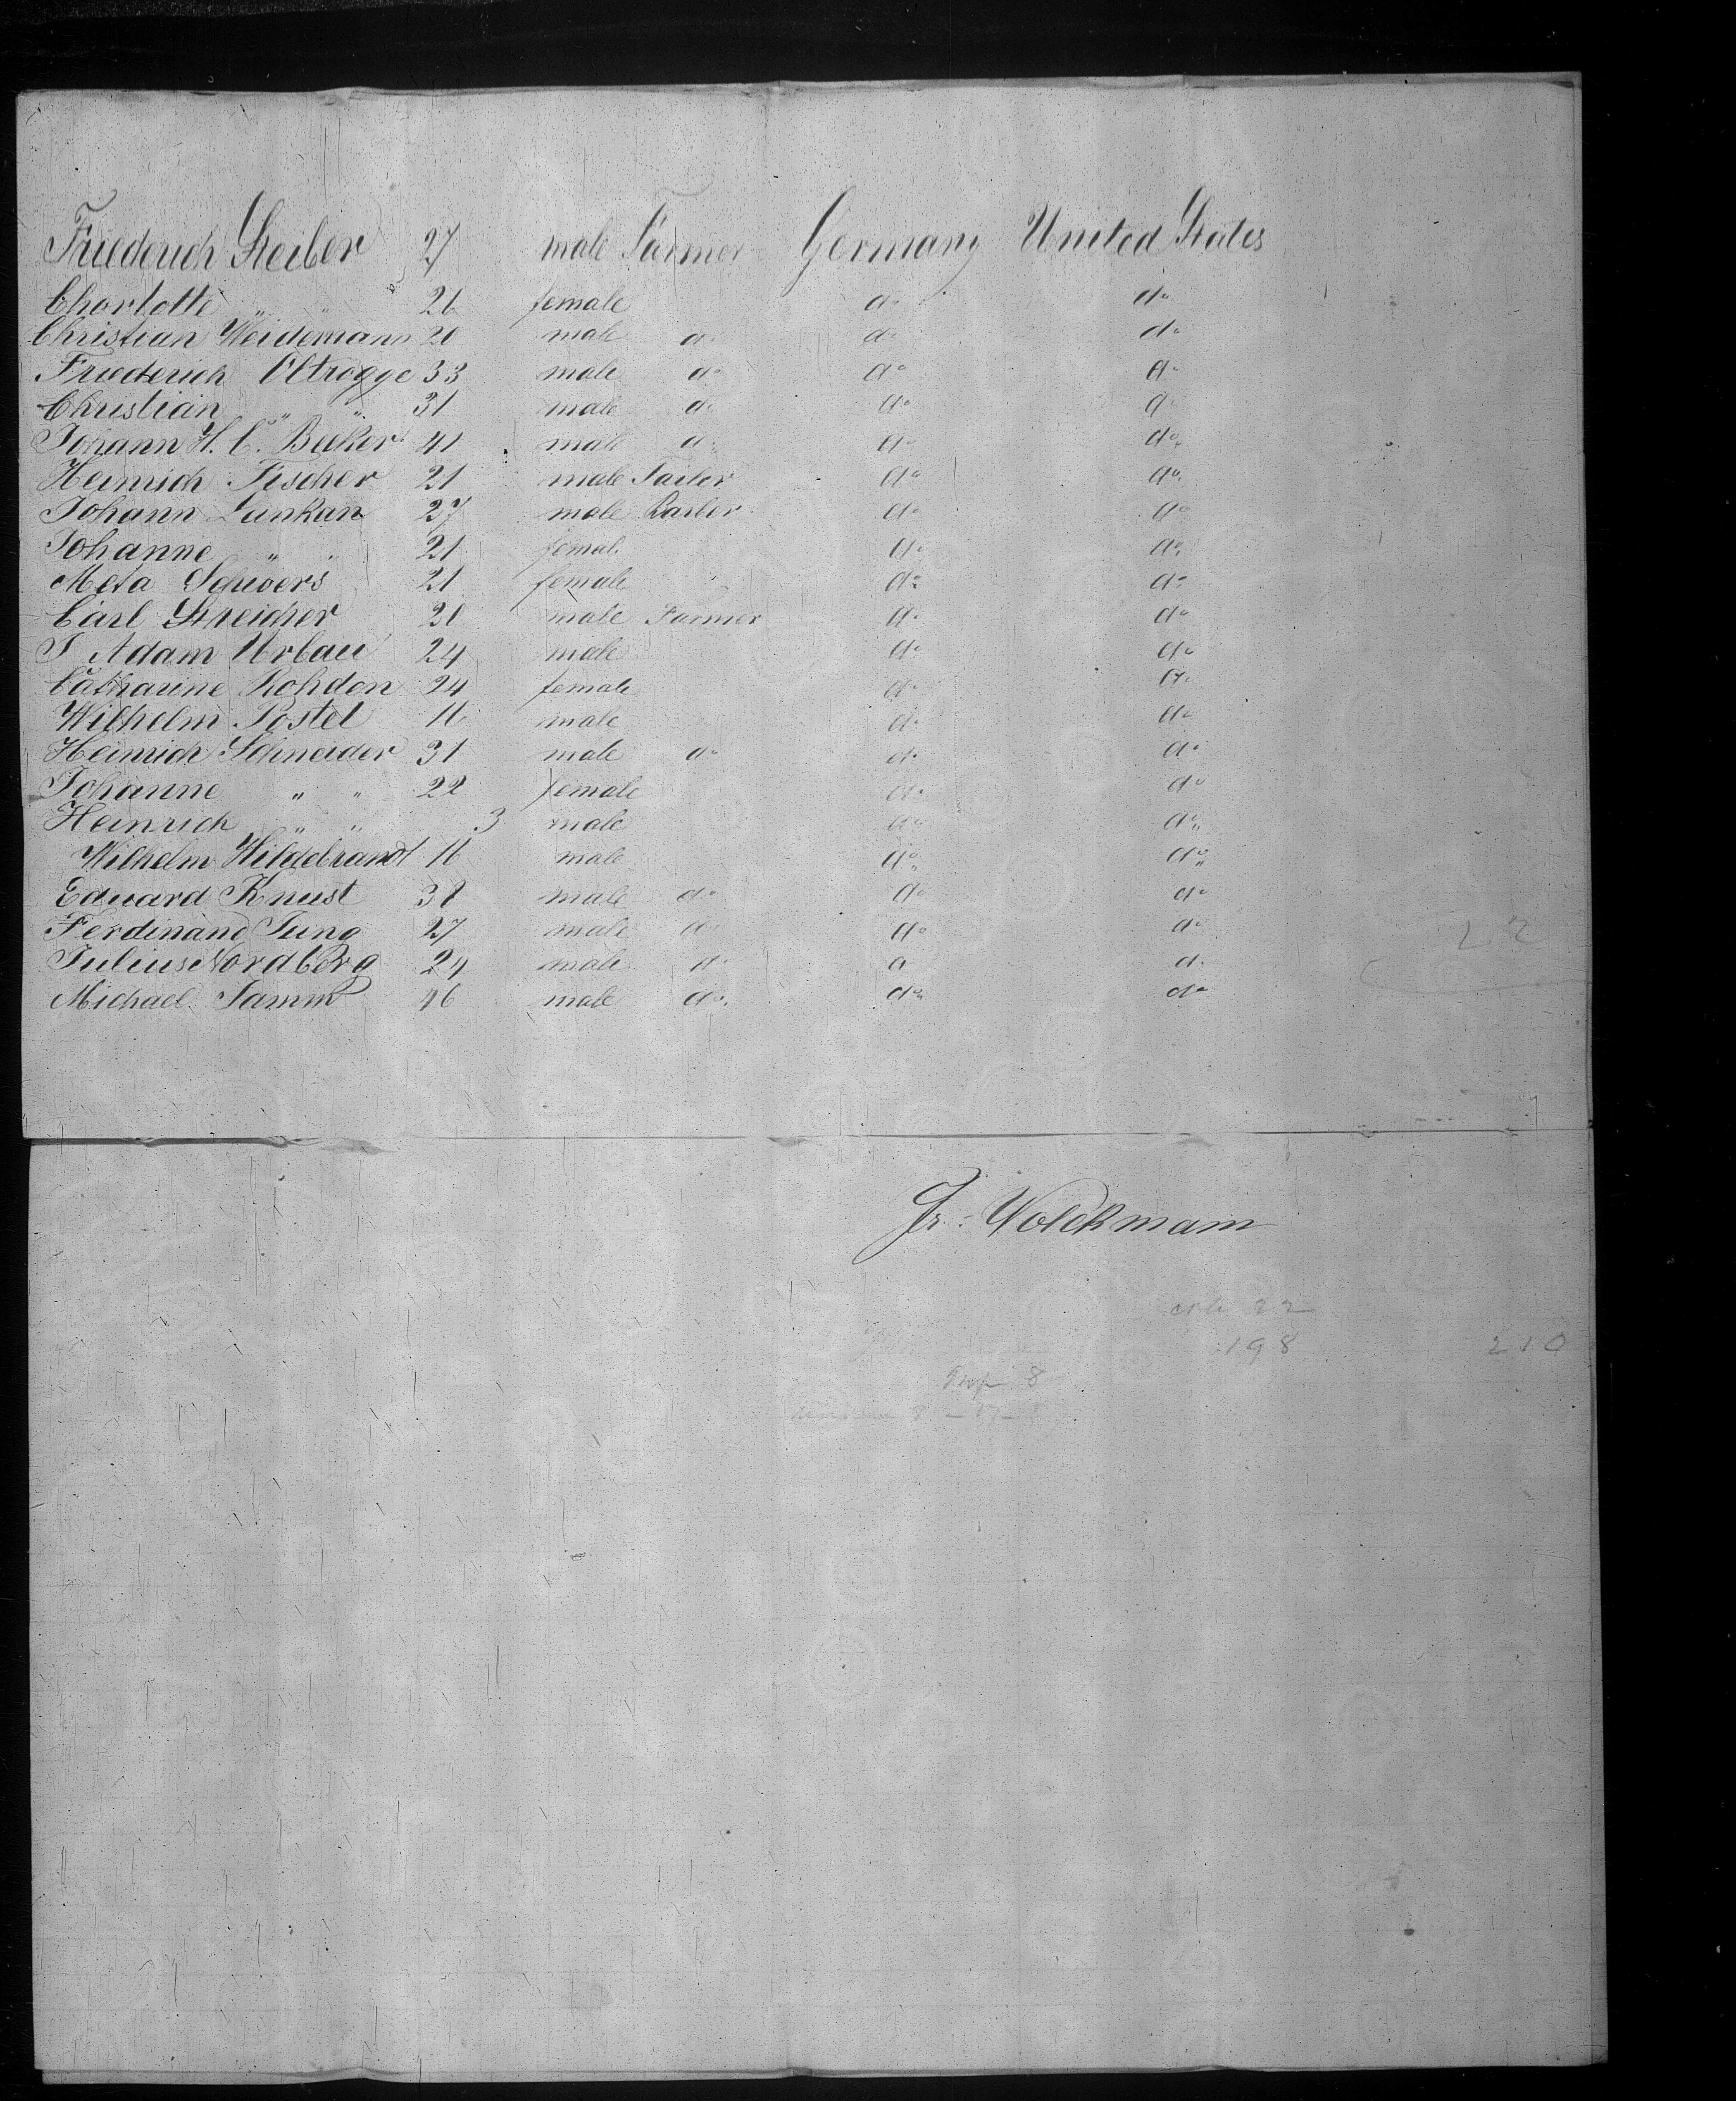 Friederich Steiber 27 male Farmer Germany United States
Charlotte " " 26 female do do
Christian Weidemann 20 male do do do
Friederich Oltrogge 33 male do do do
Christian " " 31 male do do do
Johann H. C. Buker 41 male do do do
Heinrich Fischer 21 male Tailor do do
Johann Lunkan 27 male do do
Johanne " " 21 female do do
Meta 21 female do do
Carl Streicher 20 male Farmer do do
J Adam Urbau 24 male do do
Catharine Rohden 24 female do do
Wilhelm Postel 16 male do do
Heinrich Schneider 31 male do do do
Johanne " " 22 female do do
Heinrich " " 3 male do do
Wilhelm Hildebrandt 16 male do do
Eduard Knust 38 male do do do
Ferdinand Jung 27 male do do do
22
Julius Nordberg 24 male do do do
Michael Tamm 46 male do do do
Fr. Volckmann
22
198 210
8